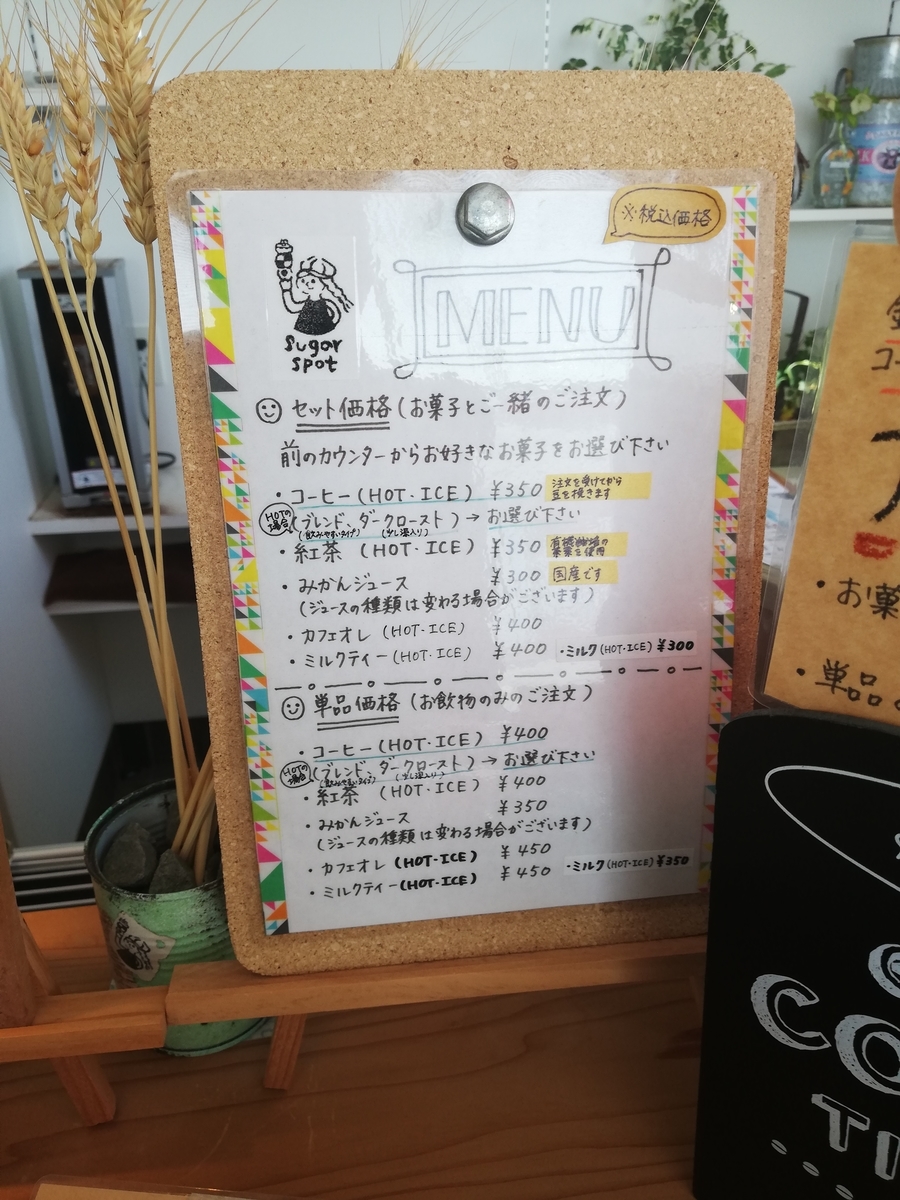 ※税込価格
MENU
Sugar
Spot
セット価格(お菓子とご一緒のご注文)
前のカウンターからお好きなお菓子をお選び下さい
・コーヒー(HOT・ICE) ¥350 注文を受けてから
豆を挽きます
HOTの
場合
(ブレンド、ダークロースト)→お選び下さい
(飲みやすいタイプ) (少し深入り)
・紅茶 (HOT・ICE) ¥350 有機栽培の
茶葉を使用
・みかんジュース ¥300 国産です
(ジュースの種類は変わる場合がございます)
・カフェオレ (HOT・ICE) ¥400
・ミルクティー(HOT・ICE) ¥400 ・ミルク(HOT・ICE) ¥300
単品価格(お飲物のみのご注文)
・コーヒー(HOT・ICE) ¥400
HOTの
場合
(ブレンド、ダークロースト)→お選び下さい
(飲みやすいタイプ) (少し深入り)
・紅茶 (HOT・ICE) ¥400
・みかんジュース ¥350
(ジュースの種類は変わる場合がございます)
・カフェオレ(HOT・ICE) ¥450
・ミルクティー(HOT・ICE) ¥450 ・ミルク(HOT・ICE) ¥350
コー
・お菓
・単品
CO
TI